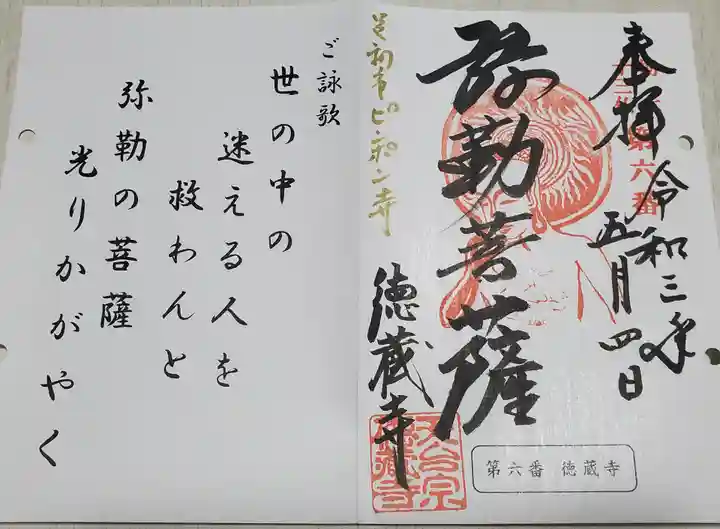 奉拝
令和三年
五月四日
第六番
弥勒菩薩
徳蔵寺
足利市ピンコロ寺
第六番 徳蔵寺
ご詠歌
世の中の
迷える人を
救わんと
弥勒の菩薩
光りかがやく